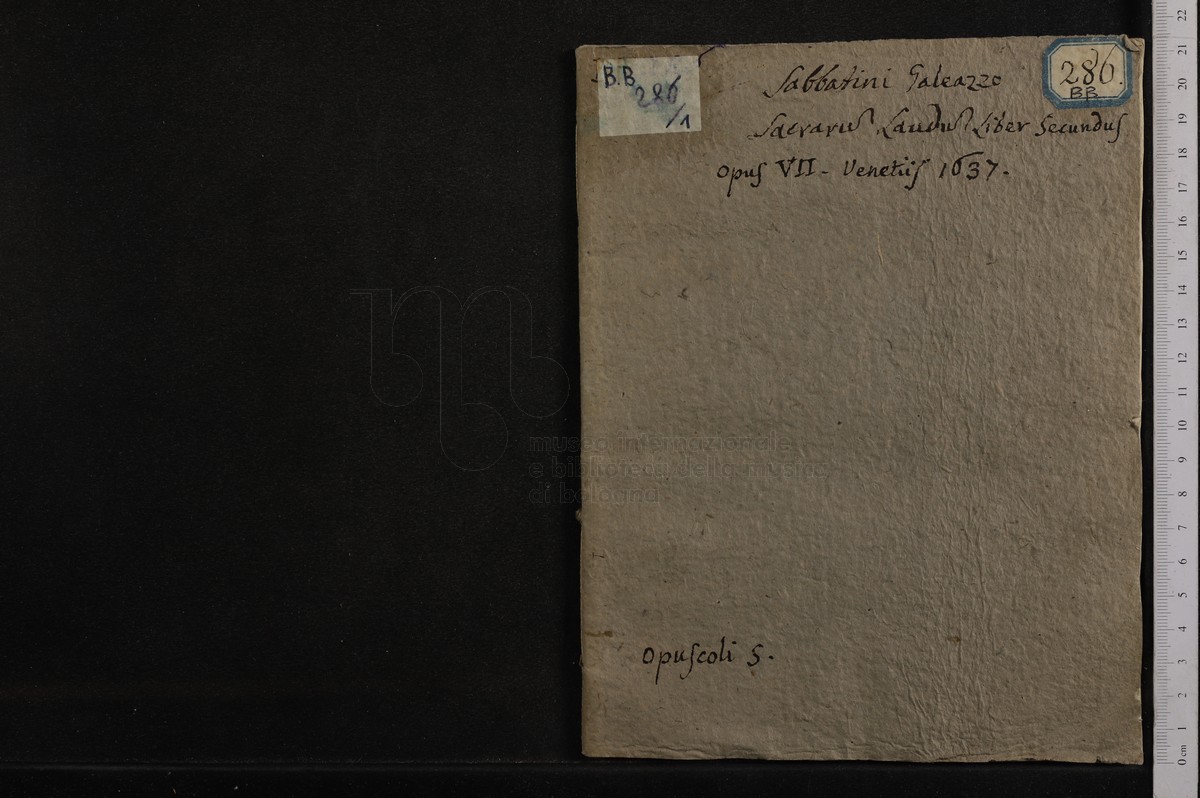 B.B
286
/1
286.
BB
Sabbatini Galeazzo
Sacrarũ Laudũ Liber Secundus
Opus VII - Venetiis 1637.
museo internazionale
e biblioteca della musica
di bologna
Opuscoli 5.
22
21
20
19
18
17
16
15
14
13
12
11
10
9
8
7
6
5
4
3
2
1
0 cm